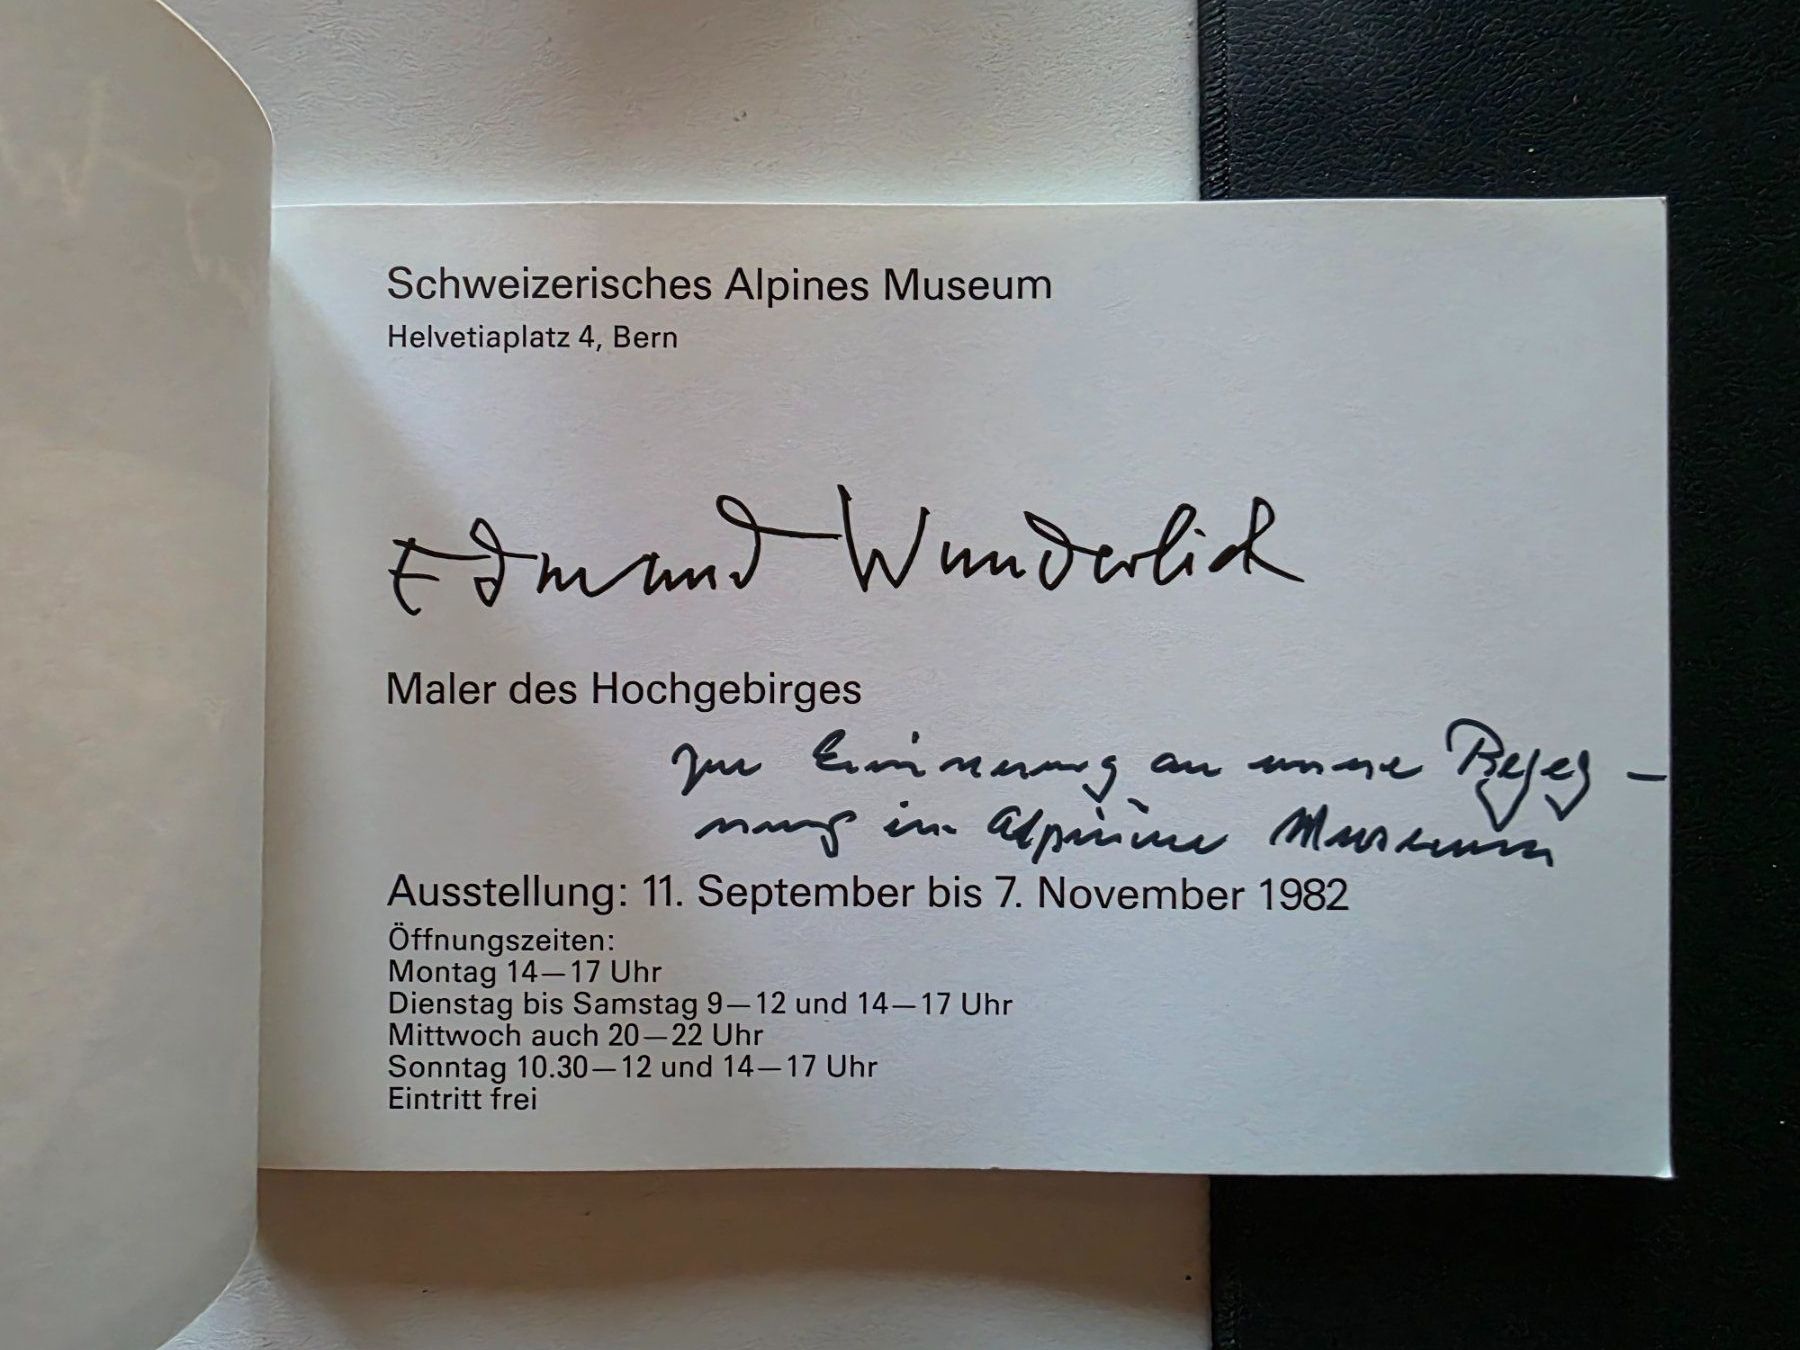 Schweizerisches Alpines Museum
Helvetiaplatz 4, Bern
Edmund Wunderlich
Maler des Hochgebirges
zur Erinnerung an unsere Begeg-
nung im Alpinen Museum
Ausstellung: 11. September bis 7. November 1982
Öffnungszeiten:
Montag 14—17 Uhr
Dienstag bis Samstag 9—12 und 14—17 Uhr
Mittwoch auch 20—22 Uhr
Sonntag 10.30—12 und 14—17 Uhr
Eintritt frei